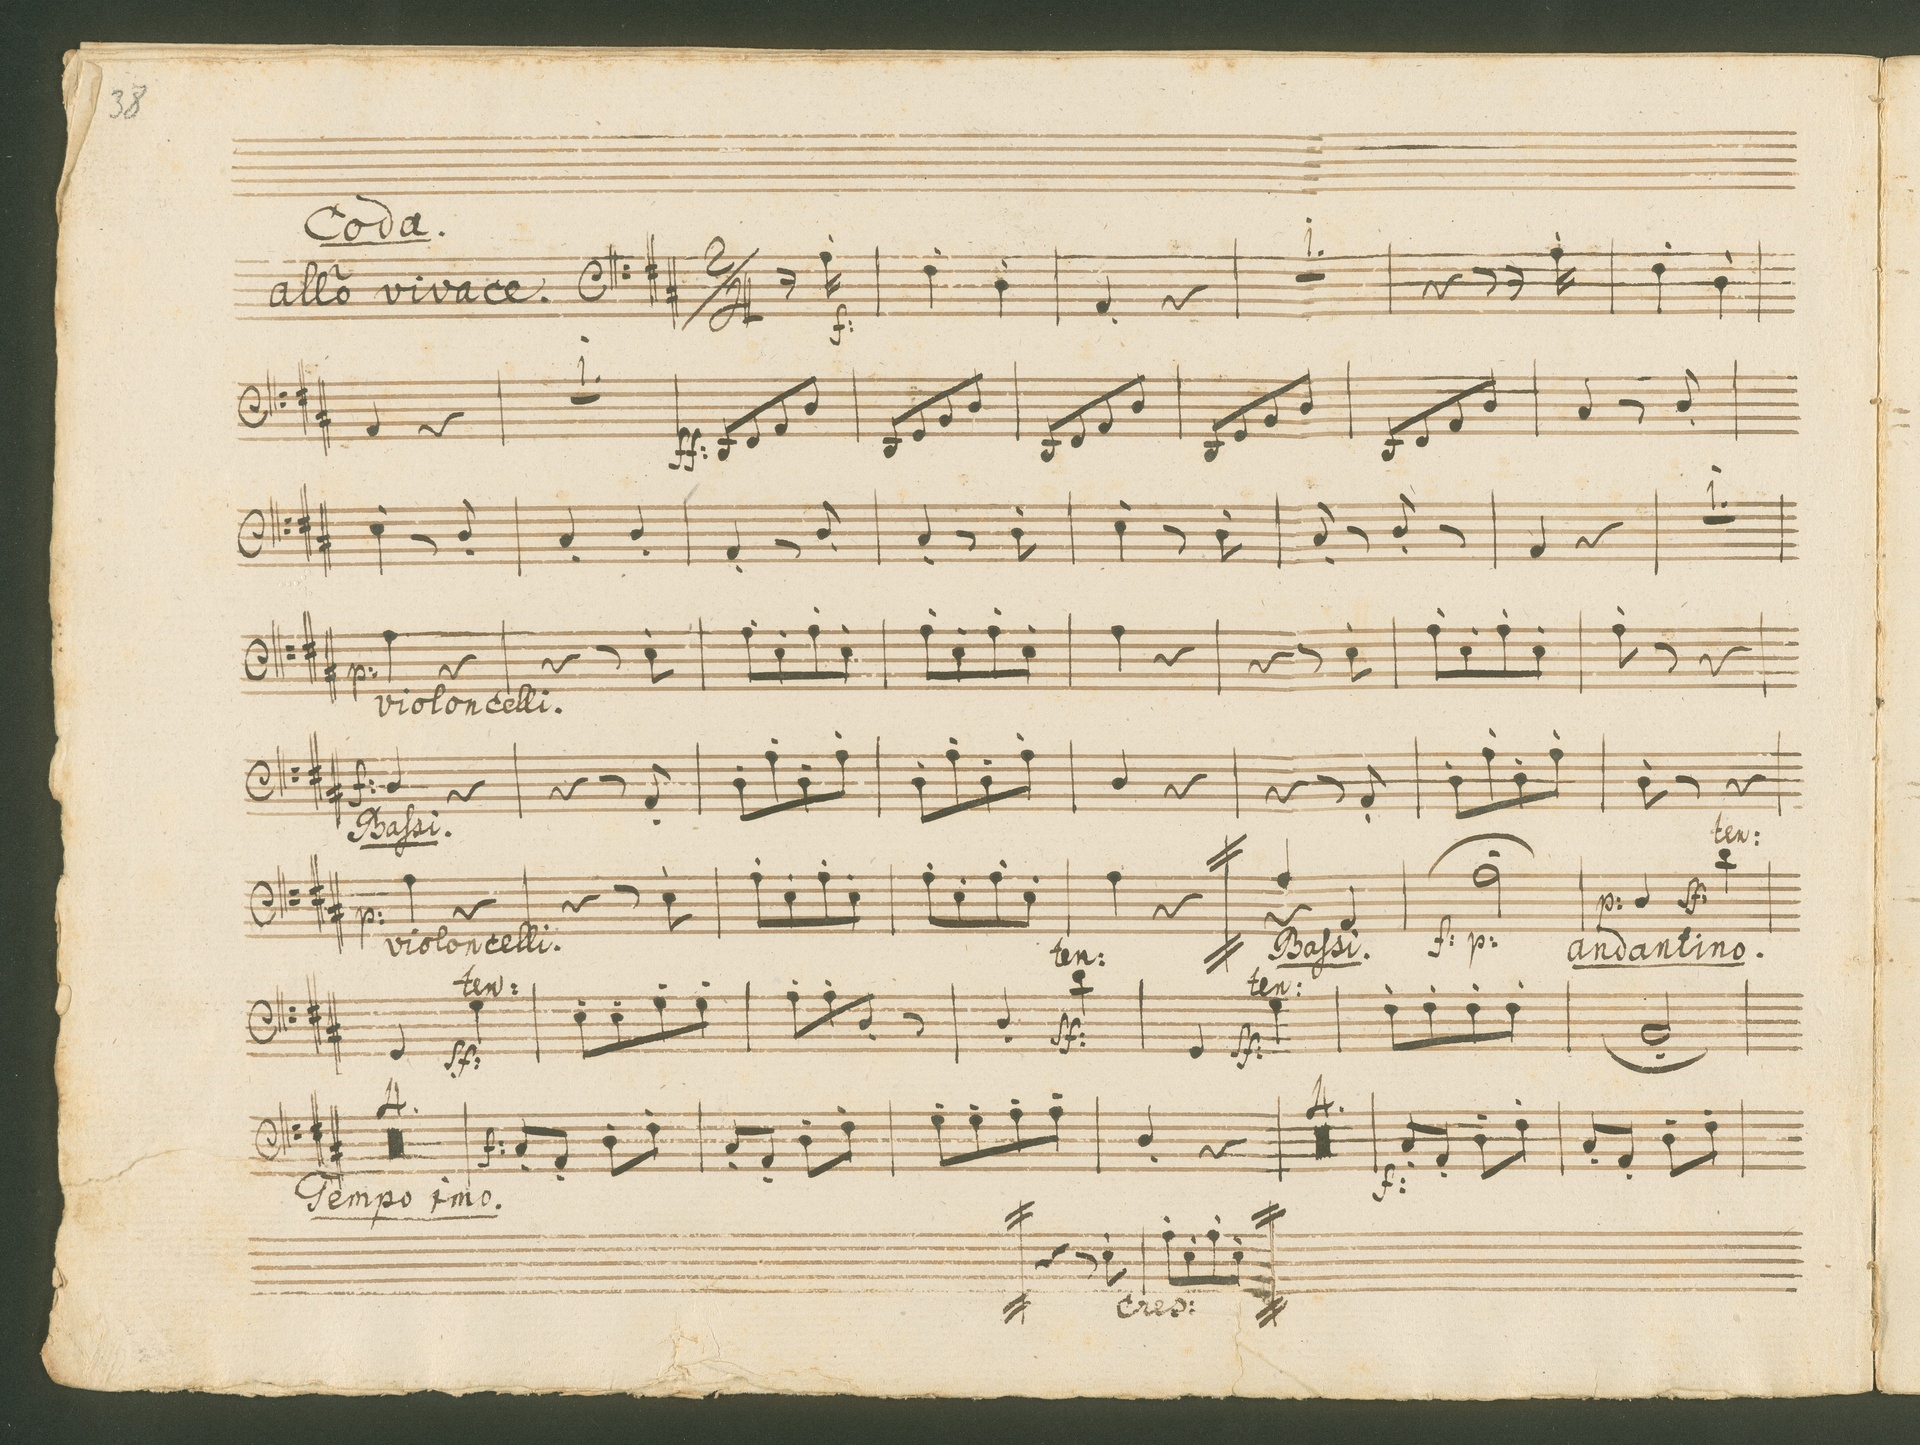 38
Coda.
allo vivace. 2/4 f: 1.
1. ff:
1.
p: violoncelli.
f: Bassi.
p: violoncelli. Bassi. f: p: p: sf: ten: andantino.
ten: sf: ten: sf: ten: sf:
4. f: 4. f:
Tempo imo.
cres: